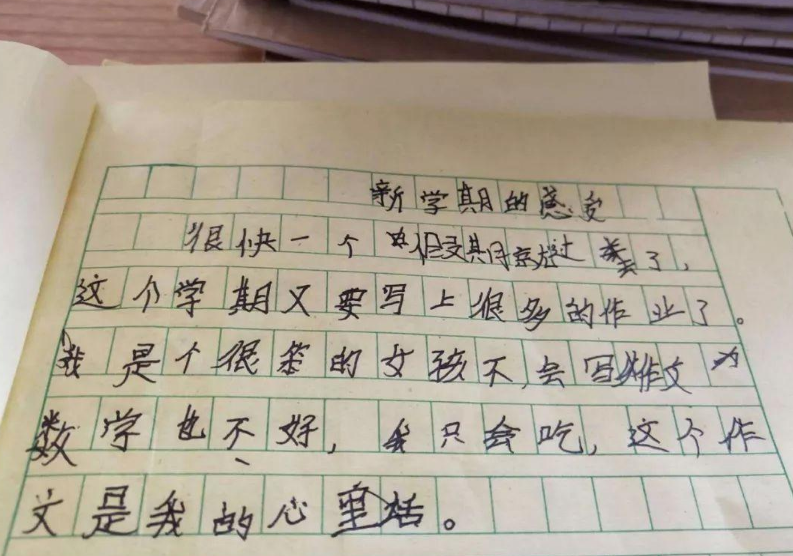 新学期的感受
很快一个假期就过去了,
这个学期又要写上很多的作业了。
我是个很笨的女孩不会写作文
数学也不好,我只会吃,这个作
文是我的心里话。